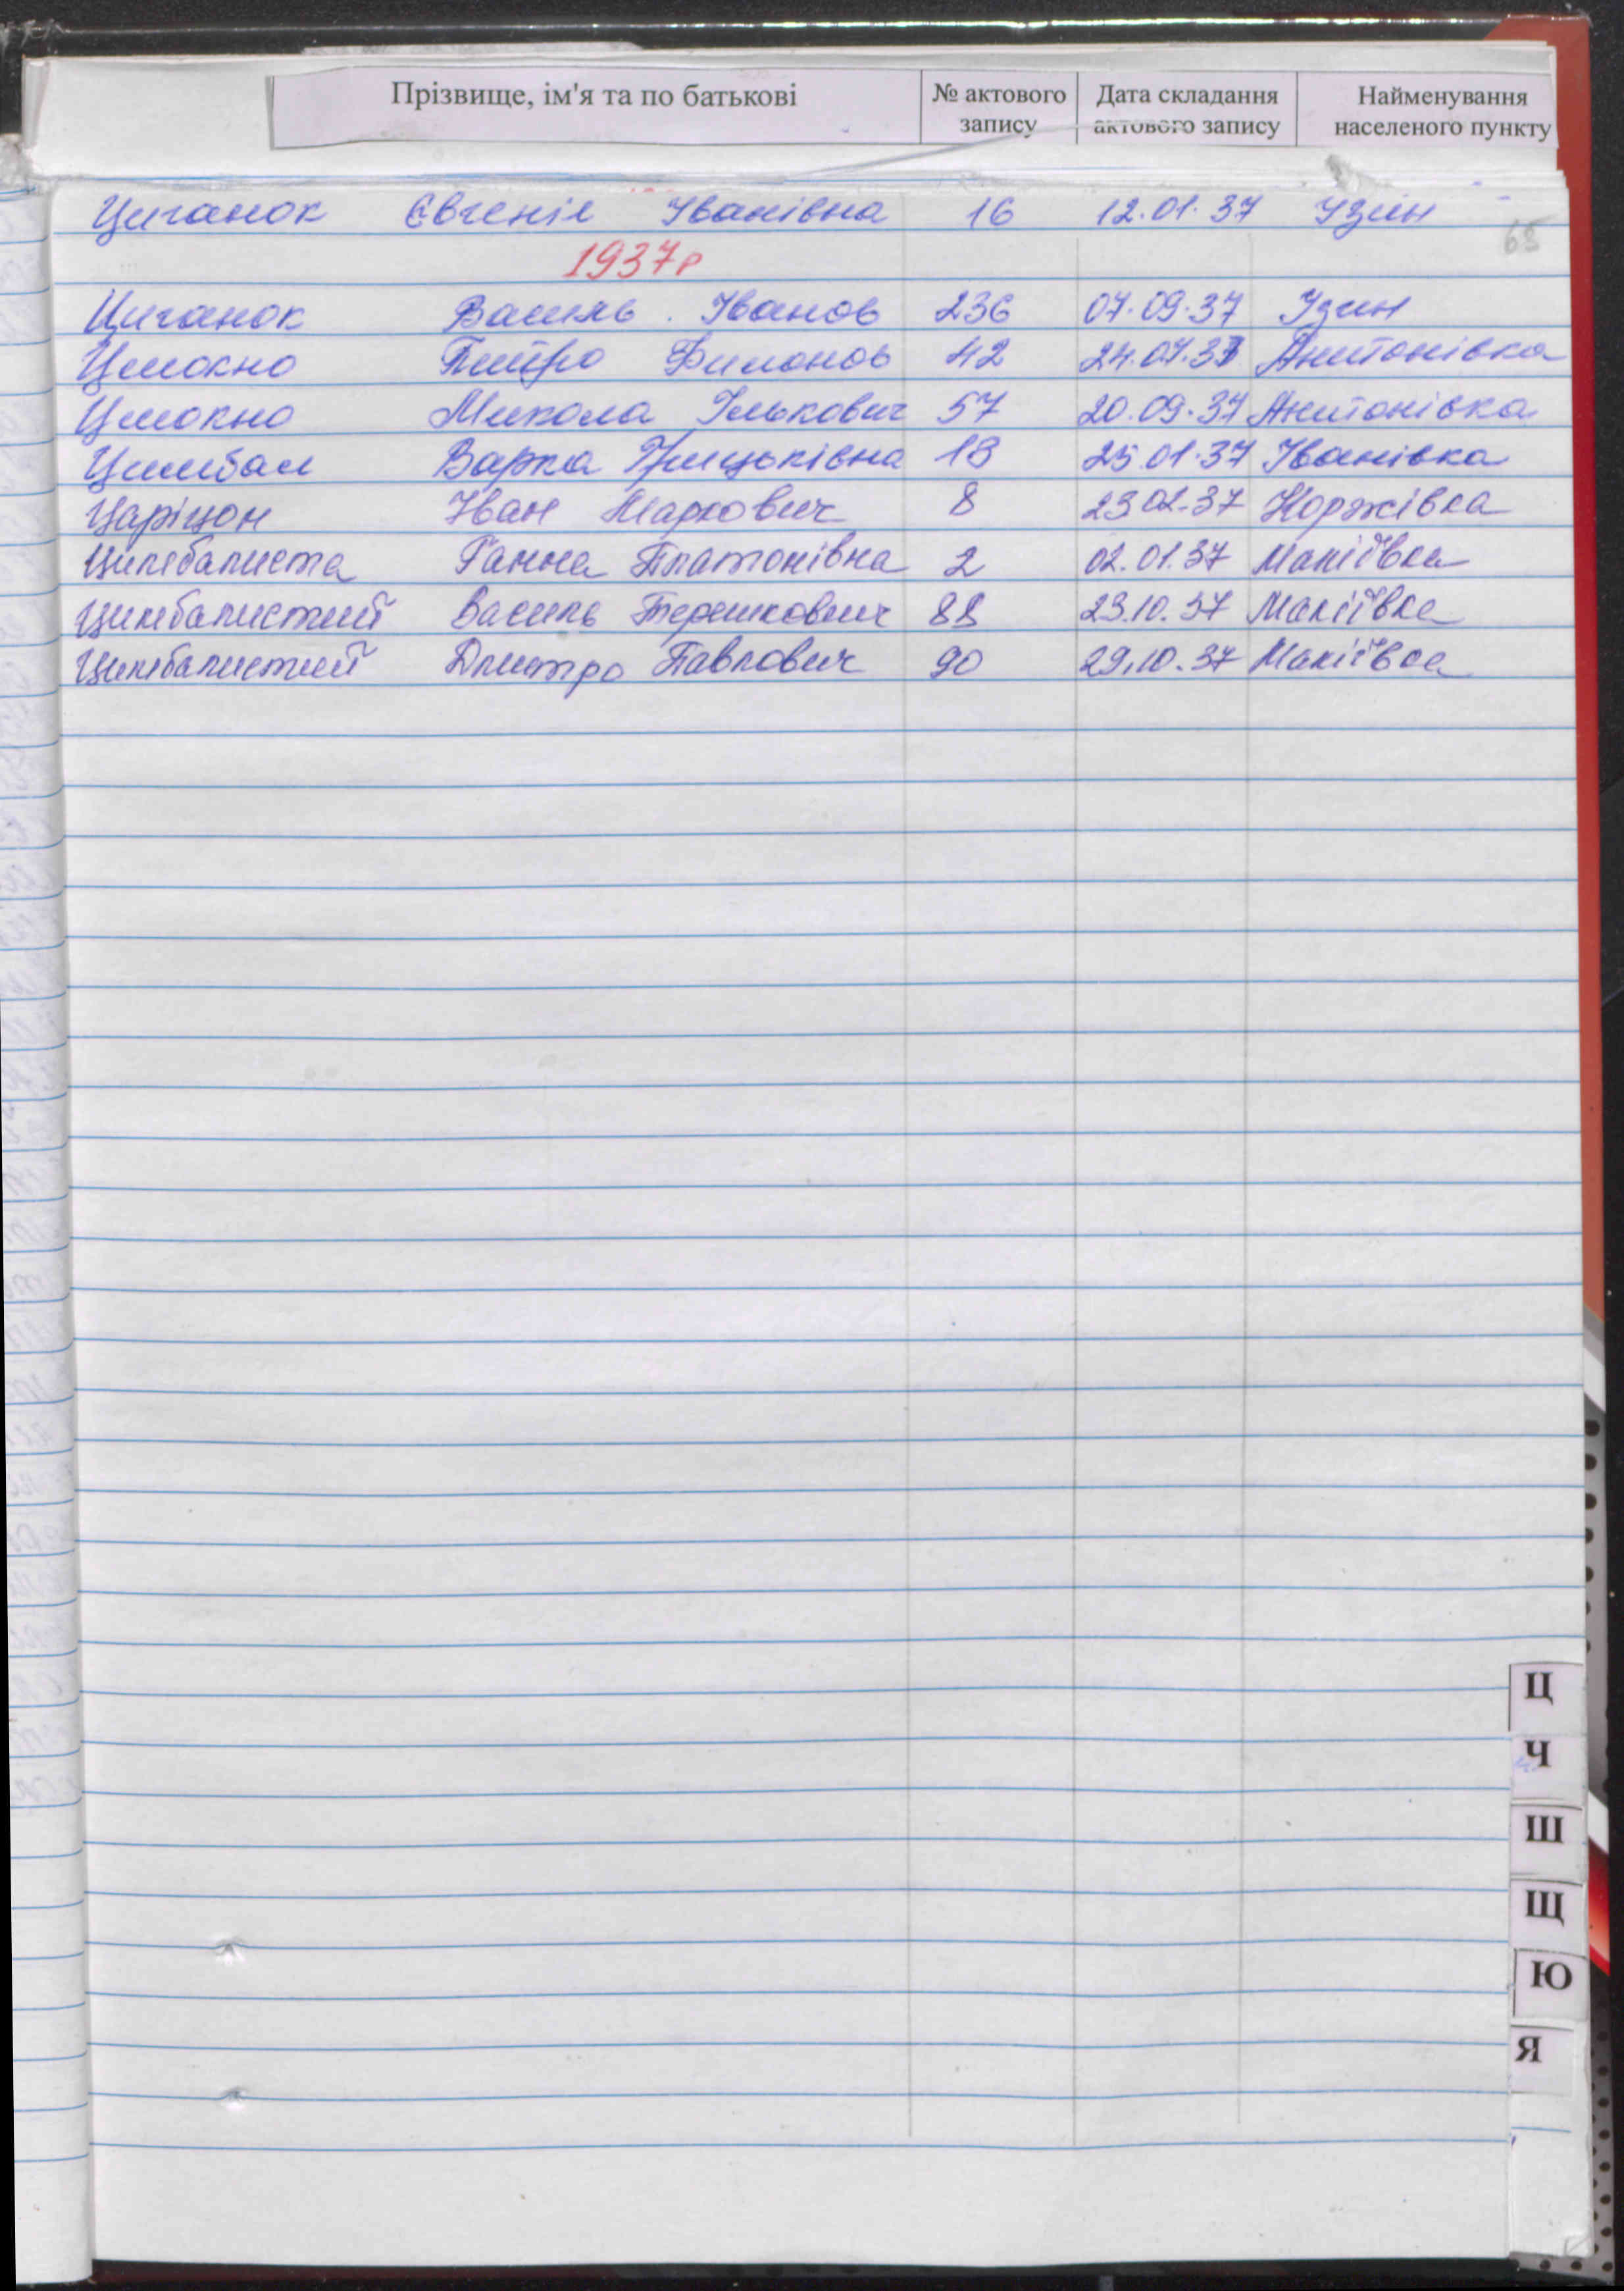 Прізвище, ім'я та по батькові № актового запису Дата складання актового запису Найменування населеного пункту
Циганок Євгенія Іванівна 16 12.01.37 Узин
65
1937р
Циганок Василь Іванов 236 07.09.37 Узин
Цмокно Петро Филонов 42 24.07.37 Антонівка
Цмокно Микола Ількович 57 20.09.37 Антонівка
Цимбал Варка Грицьківна 18 25.01.37 Іванівка
Царіцон Іван Маркович 8 23.02.37 Коржівка
Цимбалиста Ганна Платонівна 2 02.01.37 Макіївка
Цимбалистий Василь Терешкович 88 23.10.37 Макіївка
Цимбалистий Дмитро Павлович 90 29.10.37 Макіївка
Ц
Ч
Ш
Щ
Ю
Я